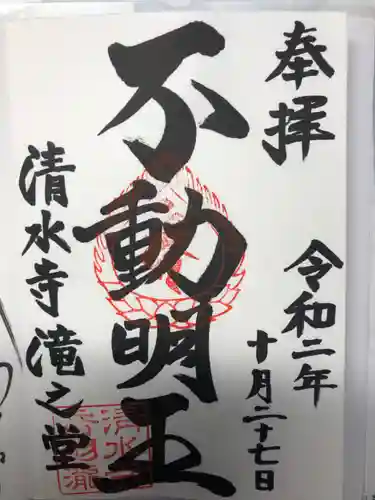 奉拝
令和二年
十月二十七日
不動明王
清水寺滝之堂